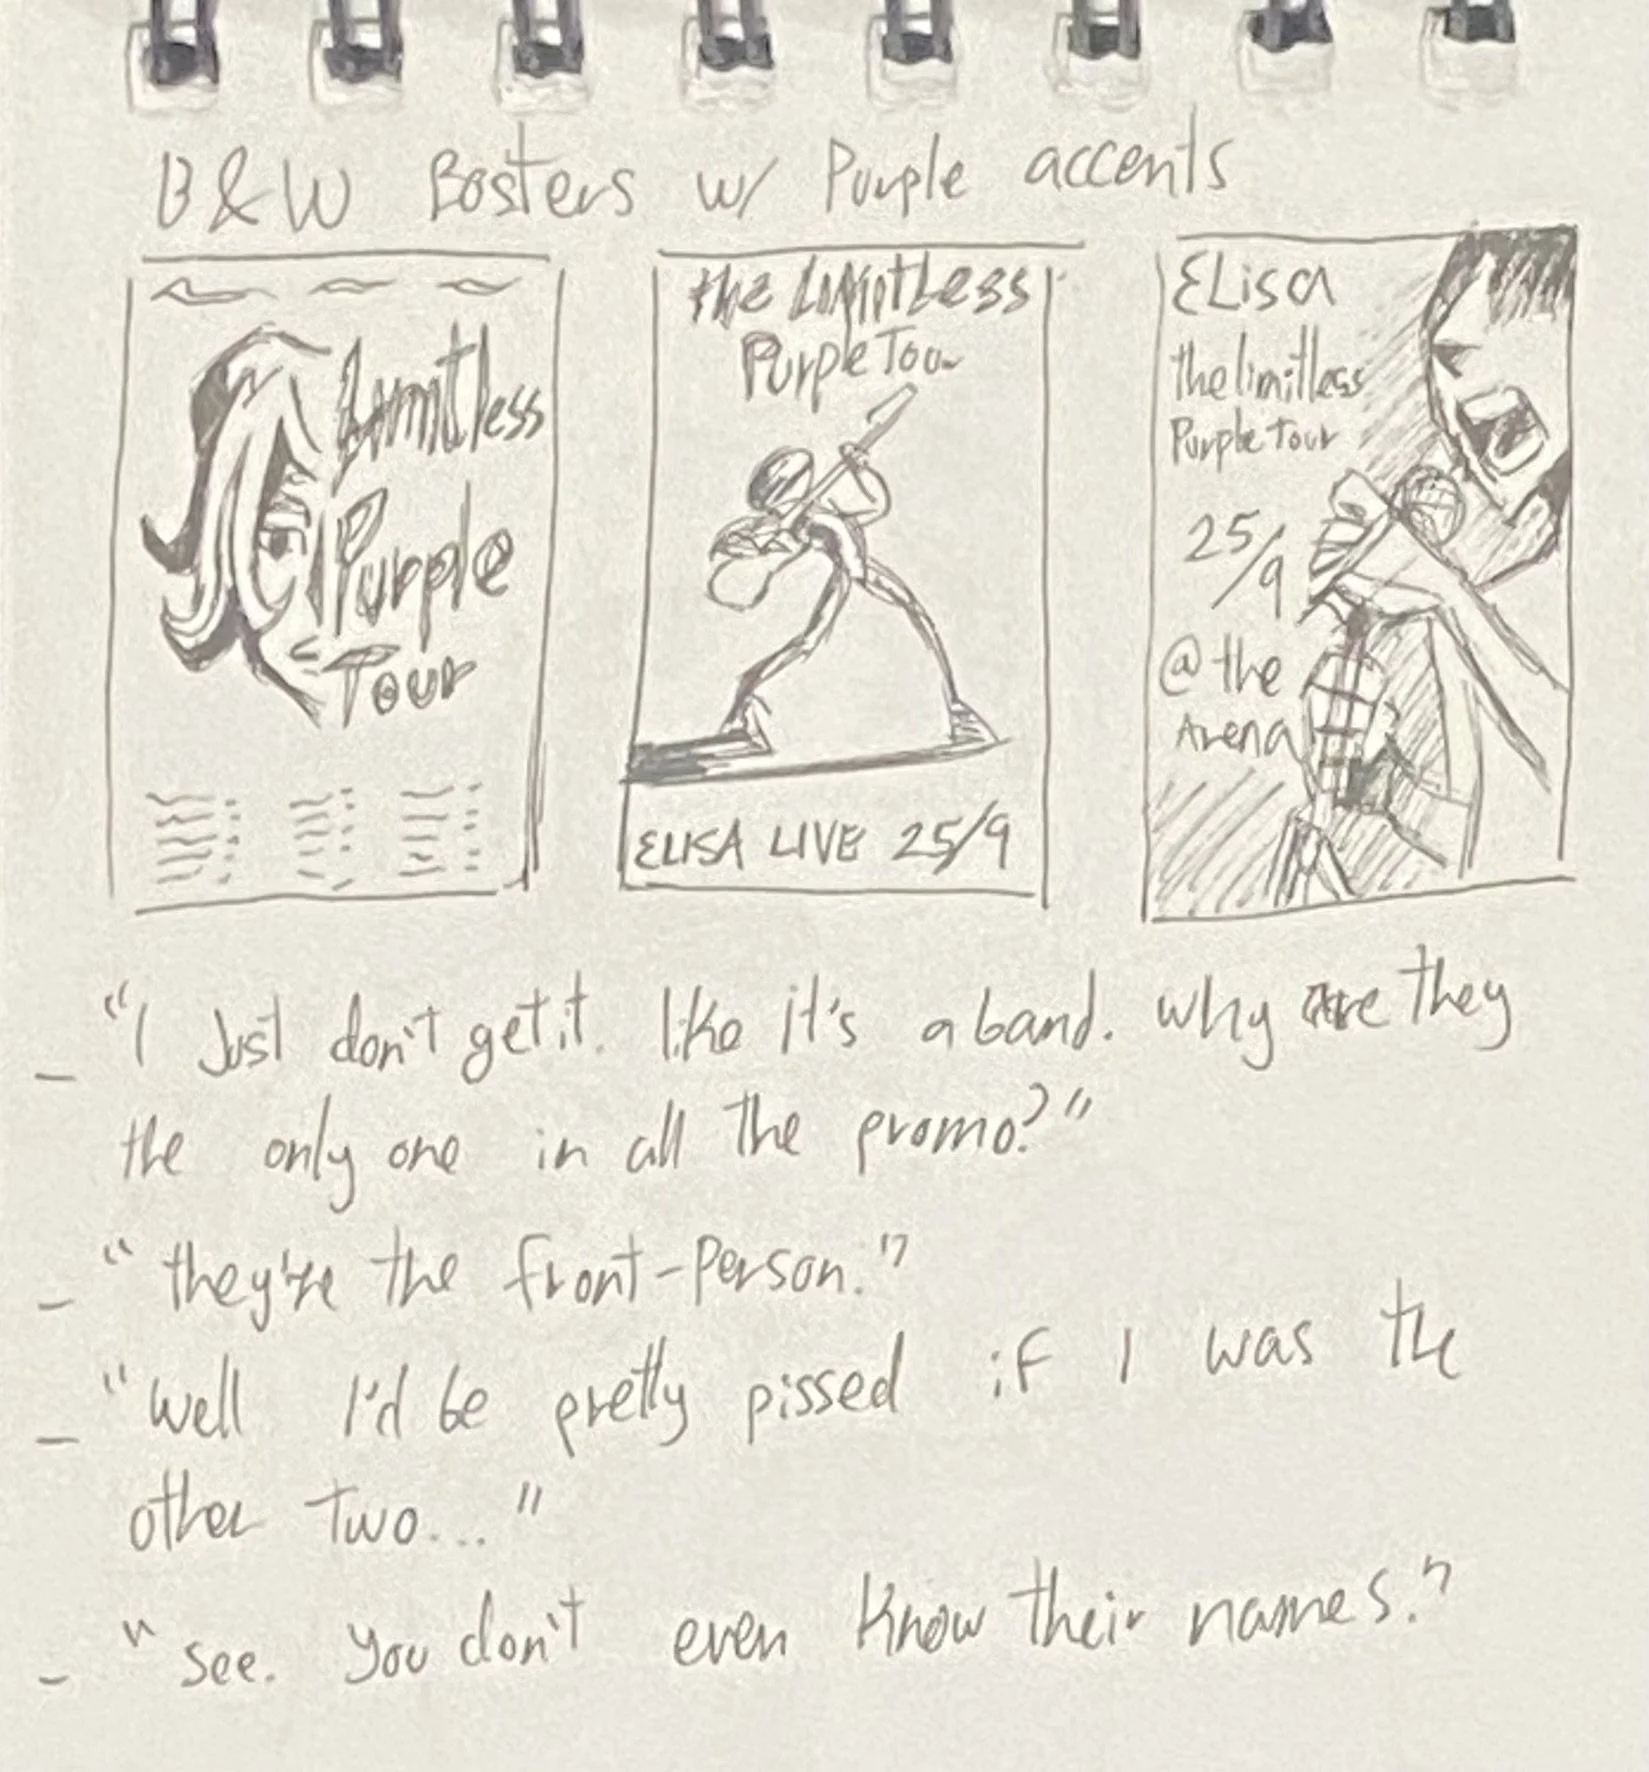 B&W Bosters w/ Purple accents
Limitless
Purple
Tour
the Limitless
Purple Tour
ELISA LIVE 25/9
ELisa
the limitless
Purple tour
25/9
@ the
Arena
– "I Just don't get it. like it's a band. why are they
the only one in all the promo?"
– "they're the front-person."
– "well I'd be pretty pissed if I was the
other two..."
– "see. you don't even know their names."